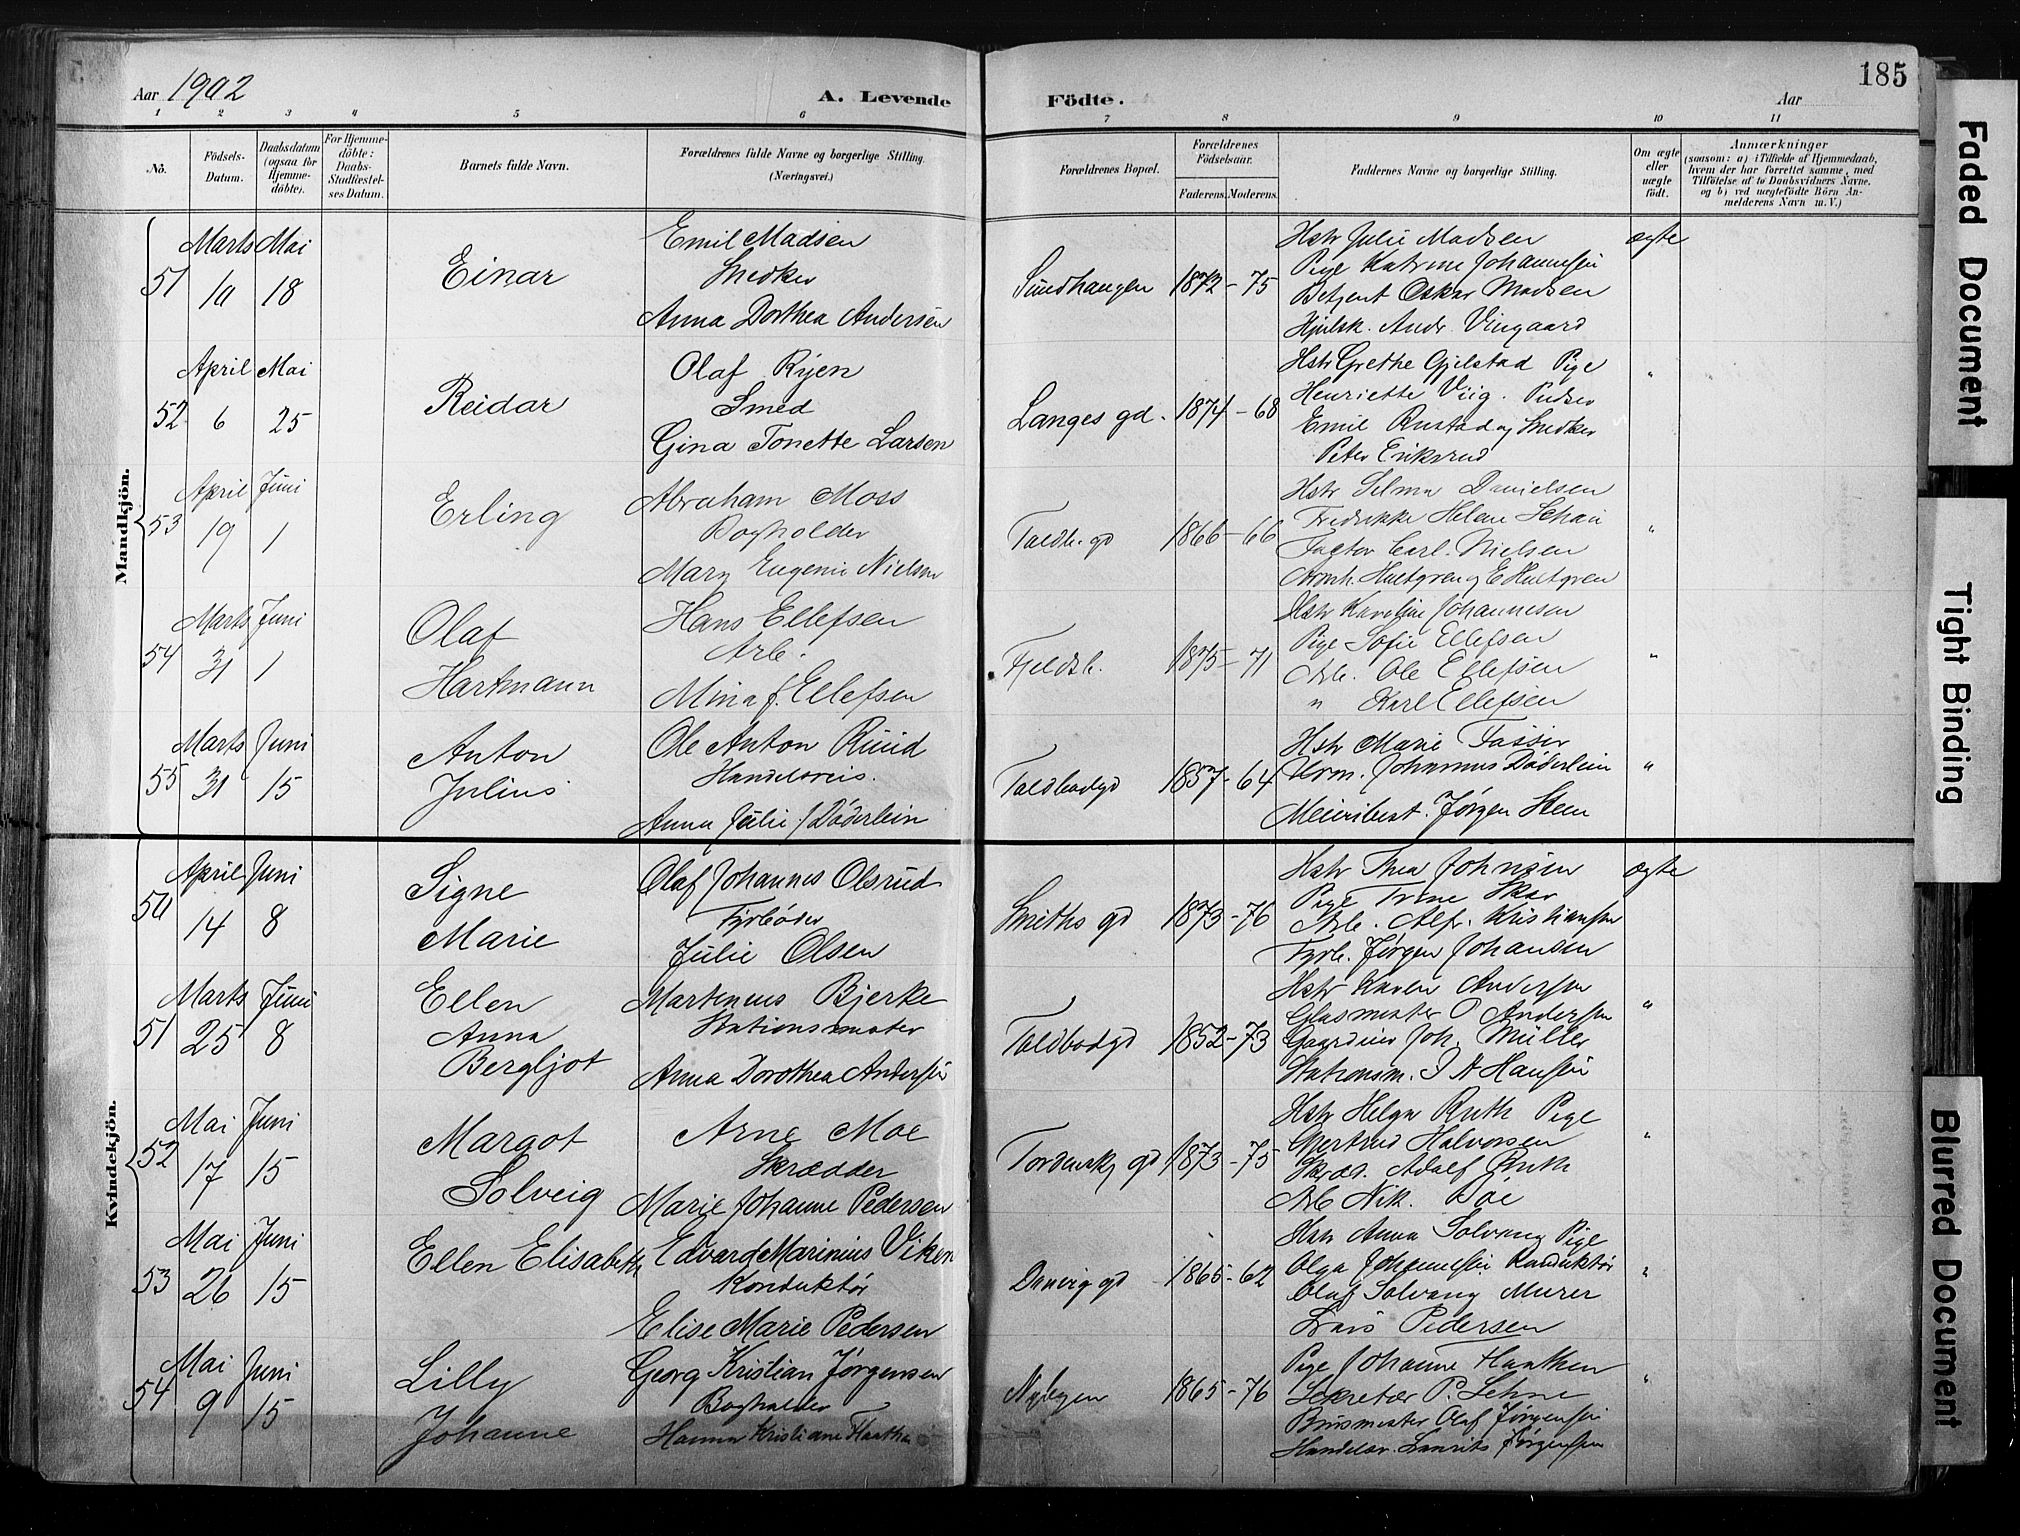 Aar 1902
A. Levende Födte.
Aar
185
1 2 3 4 5 6 7 8 9 10 11
No.
Födsels-Datum.
Daabsdatum (ogsaa for Hjemme-döbte).
For Hjemme-döbte: Daabs-Stadfæstel-ses Datum.
Barnets fulde Navn.
Forældrenes fulde Navne og borgerlige Stilling.
(Næringsvei.)
Forældrenes Bopæl.
Forældrenes Födselsaar.
Faderens. Moderens.
Faddernes Navne og borgerlige Stilling.
Om ægte eller uægte født.
Anmærkninger
(saasom: a) i Tilfælde af Hjemmedaab,
hvem der har forrettet samme, med
Tilföielse af to Daabsvidners Navne,
og b) ved uægtefödte Börn An-
melderens Navn m.V.)
Mandkjön.
51 Marts 10 Mai 18
Einar
Emil Madsen
Snedker
Anna Dorthea Andersen
Sundhaugen 1872-75
Hstr Julie Madsen
Pige Katrine Johannesen
Betjent Oskar Madsen
Hjulsk. Andr. Vingaard
ægte
52 April 6 Mai 25
Reidar
Olaf Ryen
Smed
Gina Tonette Larsen
Langes gd. 1874-68
Hstr Grethe Gjelstad Pige
Henriette Viig. Pudser
Emil Rustad og Snedker
Peter Eriksrud
"
53 April 19 Juni 1
Erling
Abraham Moss
Bogholder
Mary Eugenie Nielsen
Toldb. gd 1866-66
Hstr Selma Danielsen
Fredrikke Helene
Fagtor Carl Nielsen
Hultgren og E Hultgren
"
54 Marts 31 Juni 1
Olaf
Hartmann
Hans Ellefsen
Arb.
Mina f. Ellefsen
Fjeldsb. 1875-71
Hstr Karoline Johannesen
Pige Sofie Ellefsen
Arb. Ole Ellefsen
" Karl Ellefsen
"
55 Marts 31 Juni 15
Anton
Julius
Ole Anton Ruud
Handelsreis.
Anna Julie f Døderlein
Toldbodgd 1857-64
Hstr Marie
Urm. Johannes Døderlein
Meieribest. Jørgen Steen
"
Kvindekjön.
50 April 14 Juni 8
Signe
Marie
Olaf Johannes Olsrud
Fyrbøder
Julie Olsen
Smiths gd 1873-76
Hstr Thea Johnsen
Pige Trine Skar
Arb. Alf. Kristiansen
Fyrb. Jørgen Johansen
ægte
51 Marts 25 Juni 8
Ellen
Anna
Bergljot
Martinius Bjerke
Stationsmester
Anna Dorothea Andersen
Toldbodgd 1852-73
Hstr Karen Andersen
Glasmester O Andersen
Joh. Müller
Stationsm. I A Hansen
"
52 Mai 17 Juni 15
Margot
Solveig
Arne Moe
Skrædder
Marie Johanne Pedersen
Tordensk gd 1873-75
Hstr Helga Ruth Pige
Gjertrud Halvorsen
Skræd. Adolf Ruth
Arb Nik. Bøe
"
53 Mai 26 Juni 15
Ellen Elisabeth
Edvard Marinius Viken
Konduktør
Elise Marie Pedersen
Danvig gd 1865-62
Hstr Anna Solvang Pige
Olga Johannesen Konduktør
Olaf Solvang Murer
Lars Pedersen
"
54 Mai 9 Juni 15
Lilly
Johanne
Georg Kristian Jørgensen
Bogholder
Hanna Kristiane Haathen
Nybyen 1865-76
Pige Johanne Haathen
Sekretær P. Lehne
Brusmester Olaf Jørgensen
Handelsr. Laurits Jørgensen
"
Faded Document
Tight Binding
Blurred Document